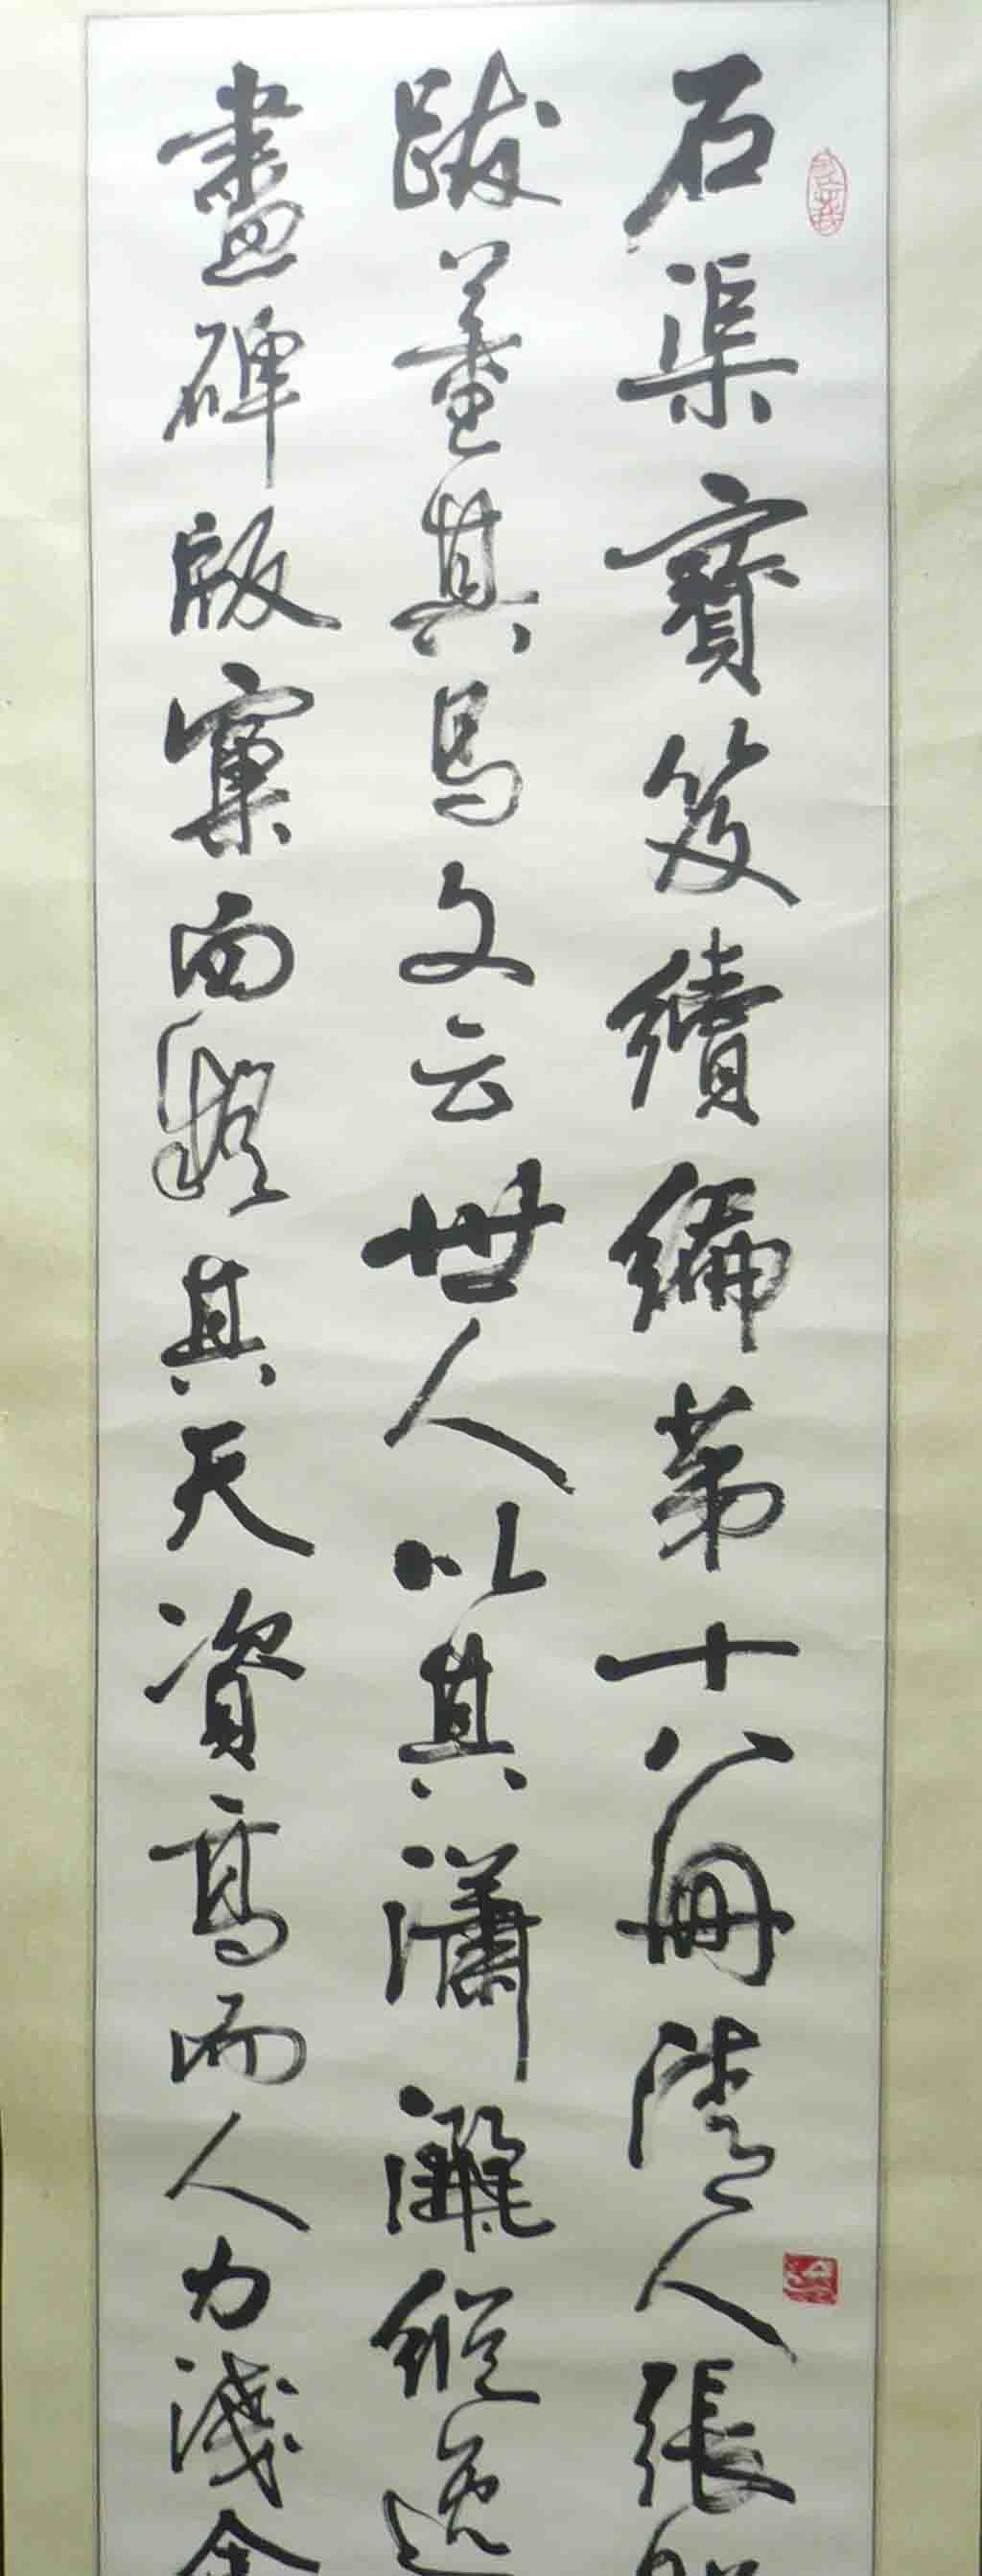 石渠寶笈續編第十八冊清人張
跋董其昌文云世人以其瀟灑縱逸
盡碑版寡而疑其天資高而人力淺